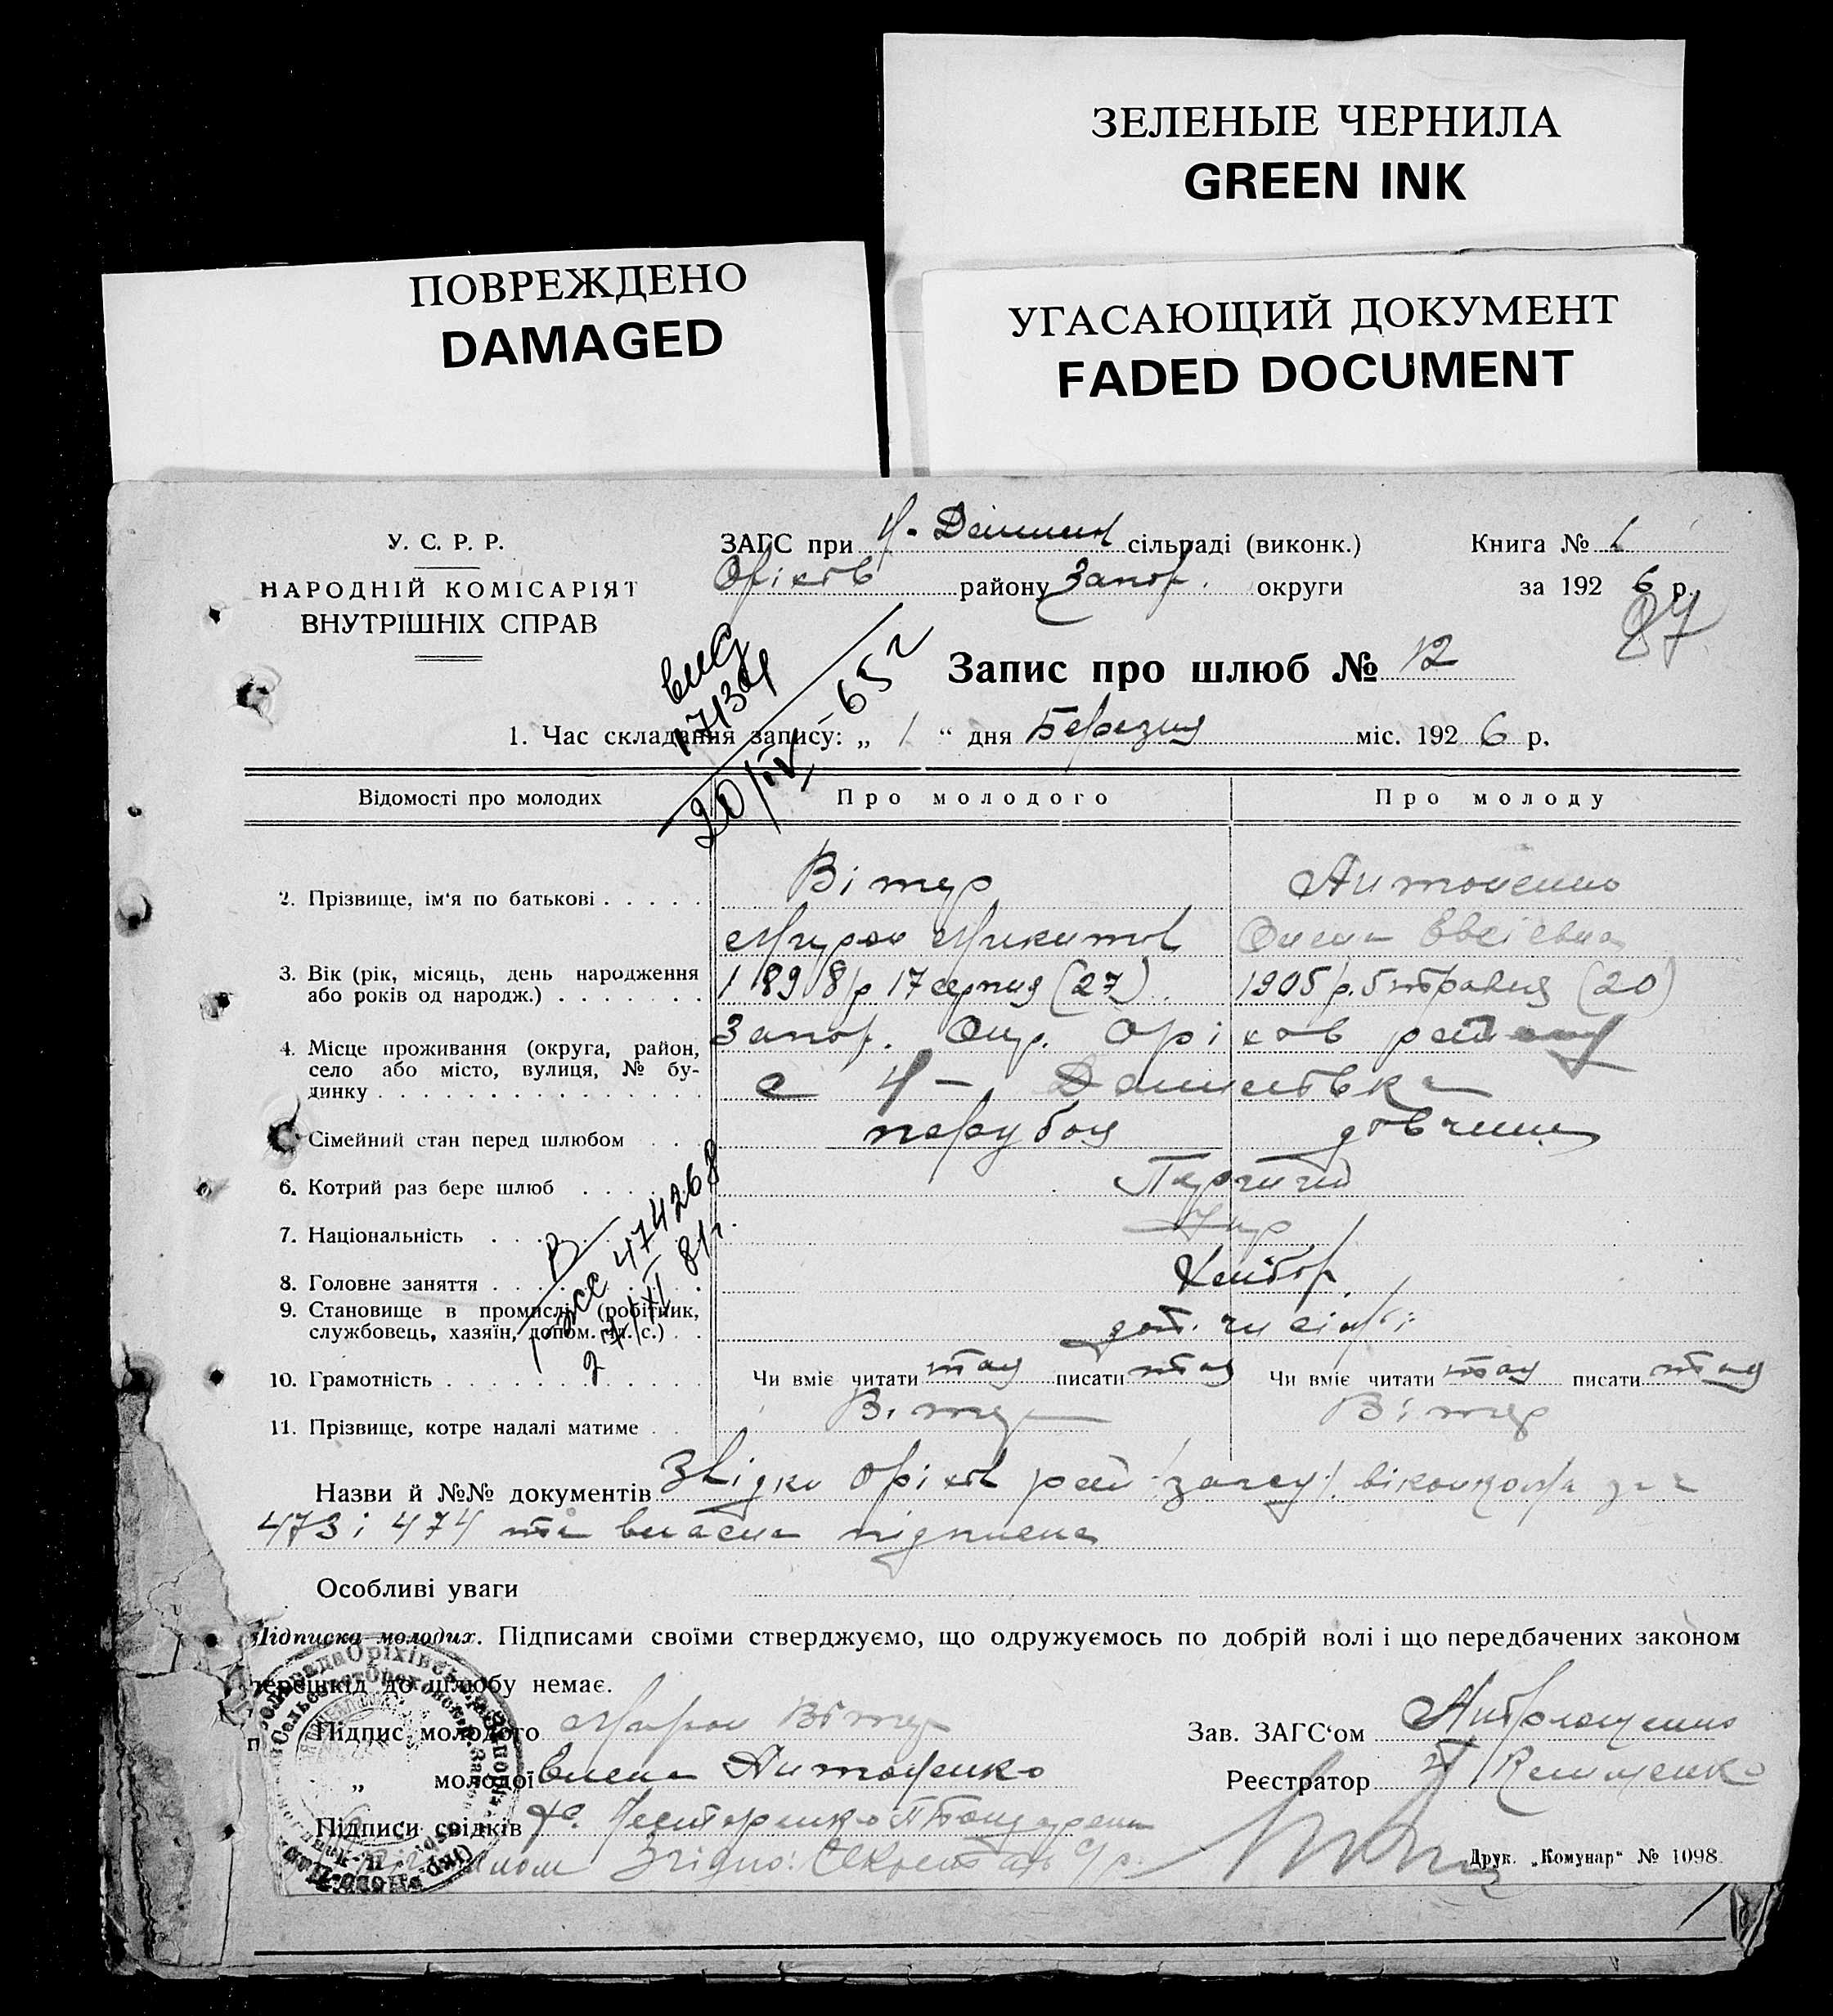 ЗЕЛЕНЫЕ ЧЕРНИЛА
GREEN INK
ПОВРЕЖДЕНО
DAMAGED
УГАСАЮЩИЙ ДОКУМЕНТ
FADED DOCUMENT
У. С. Р. Р.
НАРОДНІЙ КОМІСАРІЯТ
ВНУТРІШНІХ СПРАВ
ЗАГС при сільраді (виконк.) Книга № 1
Оріхів району Запор. округи за 192 6 р.
87
Запис про шлюб № 12
1. Час складання запису: „ 1 “ дня Березня міс. 192 6 р.
20/IV-65 г
Відомості про молодих Про молодого Про молоду
2. Прізвище, ім'я по батькові Вітер Антоненко
Мирон Микитов Олена Евсієвна
3. Вік (рік, місяць, день народження або років од народж.) 1898 р 17 серпня (27) 1905 р. 5 травня (20)
4. Місце проживання (округа, район, село або місто, вулиця, № будинку Запор. Окр. Оріхів район
с Н- Данилівка
Сімейний стан перед шлюбом парубок дівчина
6. Котрий раз бере шлюб Перший
7. Національність Укр
8. Головне заняття Хлібор.
9. Становище в промислі (робітник, службовець, хазяїн, допом. чл. с.) доп. чл сімї
474268
10. Грамотність Чи вміє читати так писати так Чи вміє читати так писати так
11. Прізвище, котре надалі матиме Вітер Вітер
Назви й №№ документів Звідки Оріхів рай загсу вiконкома за
473 і 474 та власна підписка
Особливі уваги
Підписка молодих. Підписами своїми стверджуємо, що одружуємось по добрій волі і що передбачених законом
перешкід до шлюбу немає.
Підпис молодого Мирон Вітер Зав. ЗАГС'ом
„ молодої Елена Антоненко Реєстратор
Підписи свідків Нестеренко
Згідно: Секретарь
Друк. „Комунар“ № 1098